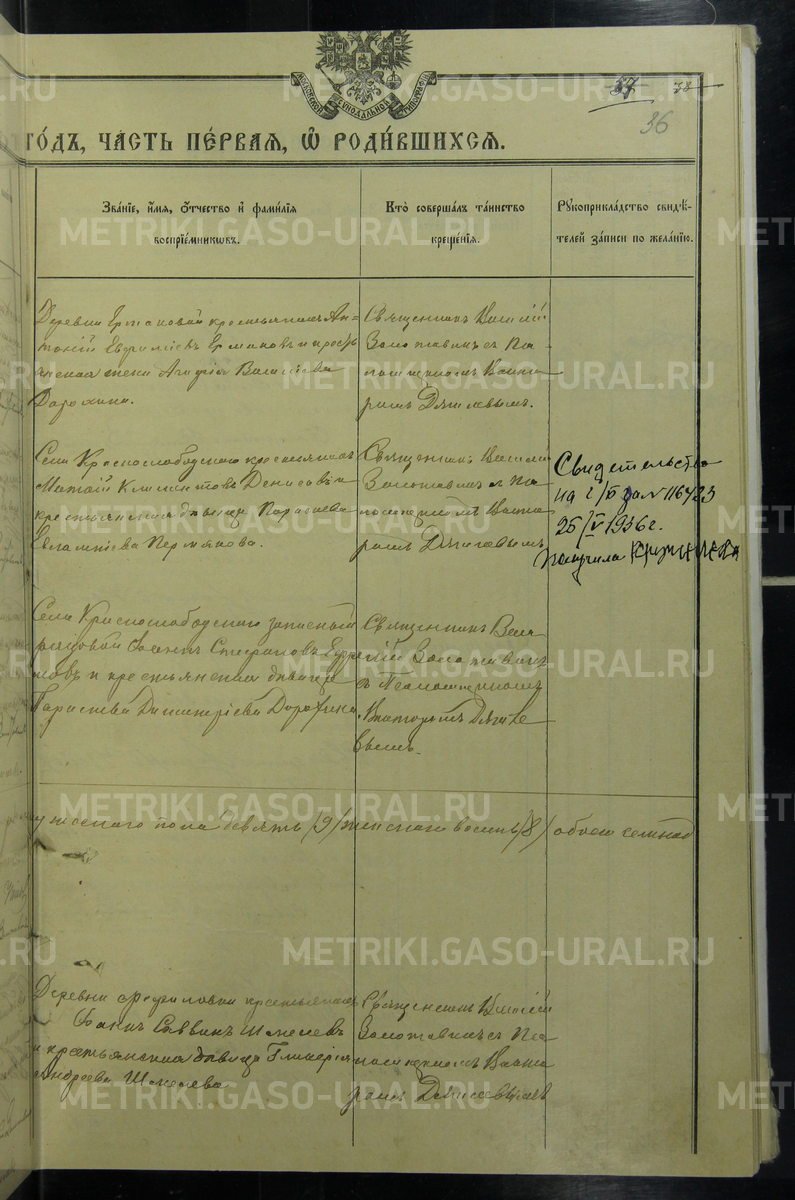 МОСКОВСКОЙ СѴНОДАЛЬНОЙ ТИПОГРАФІИ
57 38
36
ГО́ДЪ, ЧА́СТЬ ПЕ́РВАЯ, Ѡ҆ РОДИ́ВШИХСЯ.
Зва́нїе, и҆́мя, ѻ҆́тчество и҆ фами́лїя
воспрїе́мникѡвъ.
Кто̀ соверша́лъ та́инство
креще́нїя.
Рꙋкоприкла́дство свидѣ́-
телей за́писи по жела́нїю.
Деревни Ермаковой крестьянинъ Ан=
тоній Евфиміевъ Ермаковъ и кресть
янская жена Агафія Васильева
Дорохина.
Священникъ Василій
Золотавинъ съ Пса
ломщикомъ Викто
ромъ Дягилевымъ.
Села Краснослободского крестьянинъ
Матѳій Климентовъ Денисовъ и
крестьянская дѣвица Параскева
Евлампіева Пермякова.
Священникъ Василій
Золотавинъ съ Пса
ломщикомъ Викто
ромъ Дягилевымъ
Свидетельство
на
за № 116423
25/V 1936 г.
получила
Села Краснослободского запасный
рядовой Іоаннъ Стефановъ
и крестьянская дѣвица
Параскева Димитріева Дорохина.
Священникъ Васи
лій Золотавинъ
съ Псаломщикомъ
Викторомъ Дягиле
вымъ.
мужескаго пола девять /9/ женскаго восемь /8/ обоего семнад
Деревни крестьянинъ
Іоаннъ Саввинъ Шмелевъ
и крестьянская дѣвица Гликерія
Андреева Шмелева
Священникъ Василій
Золотавинъ съ Пса
ломщикомъ Викто
ромъ Дягилевымъ
METRIKI.GASO-URAL.RU